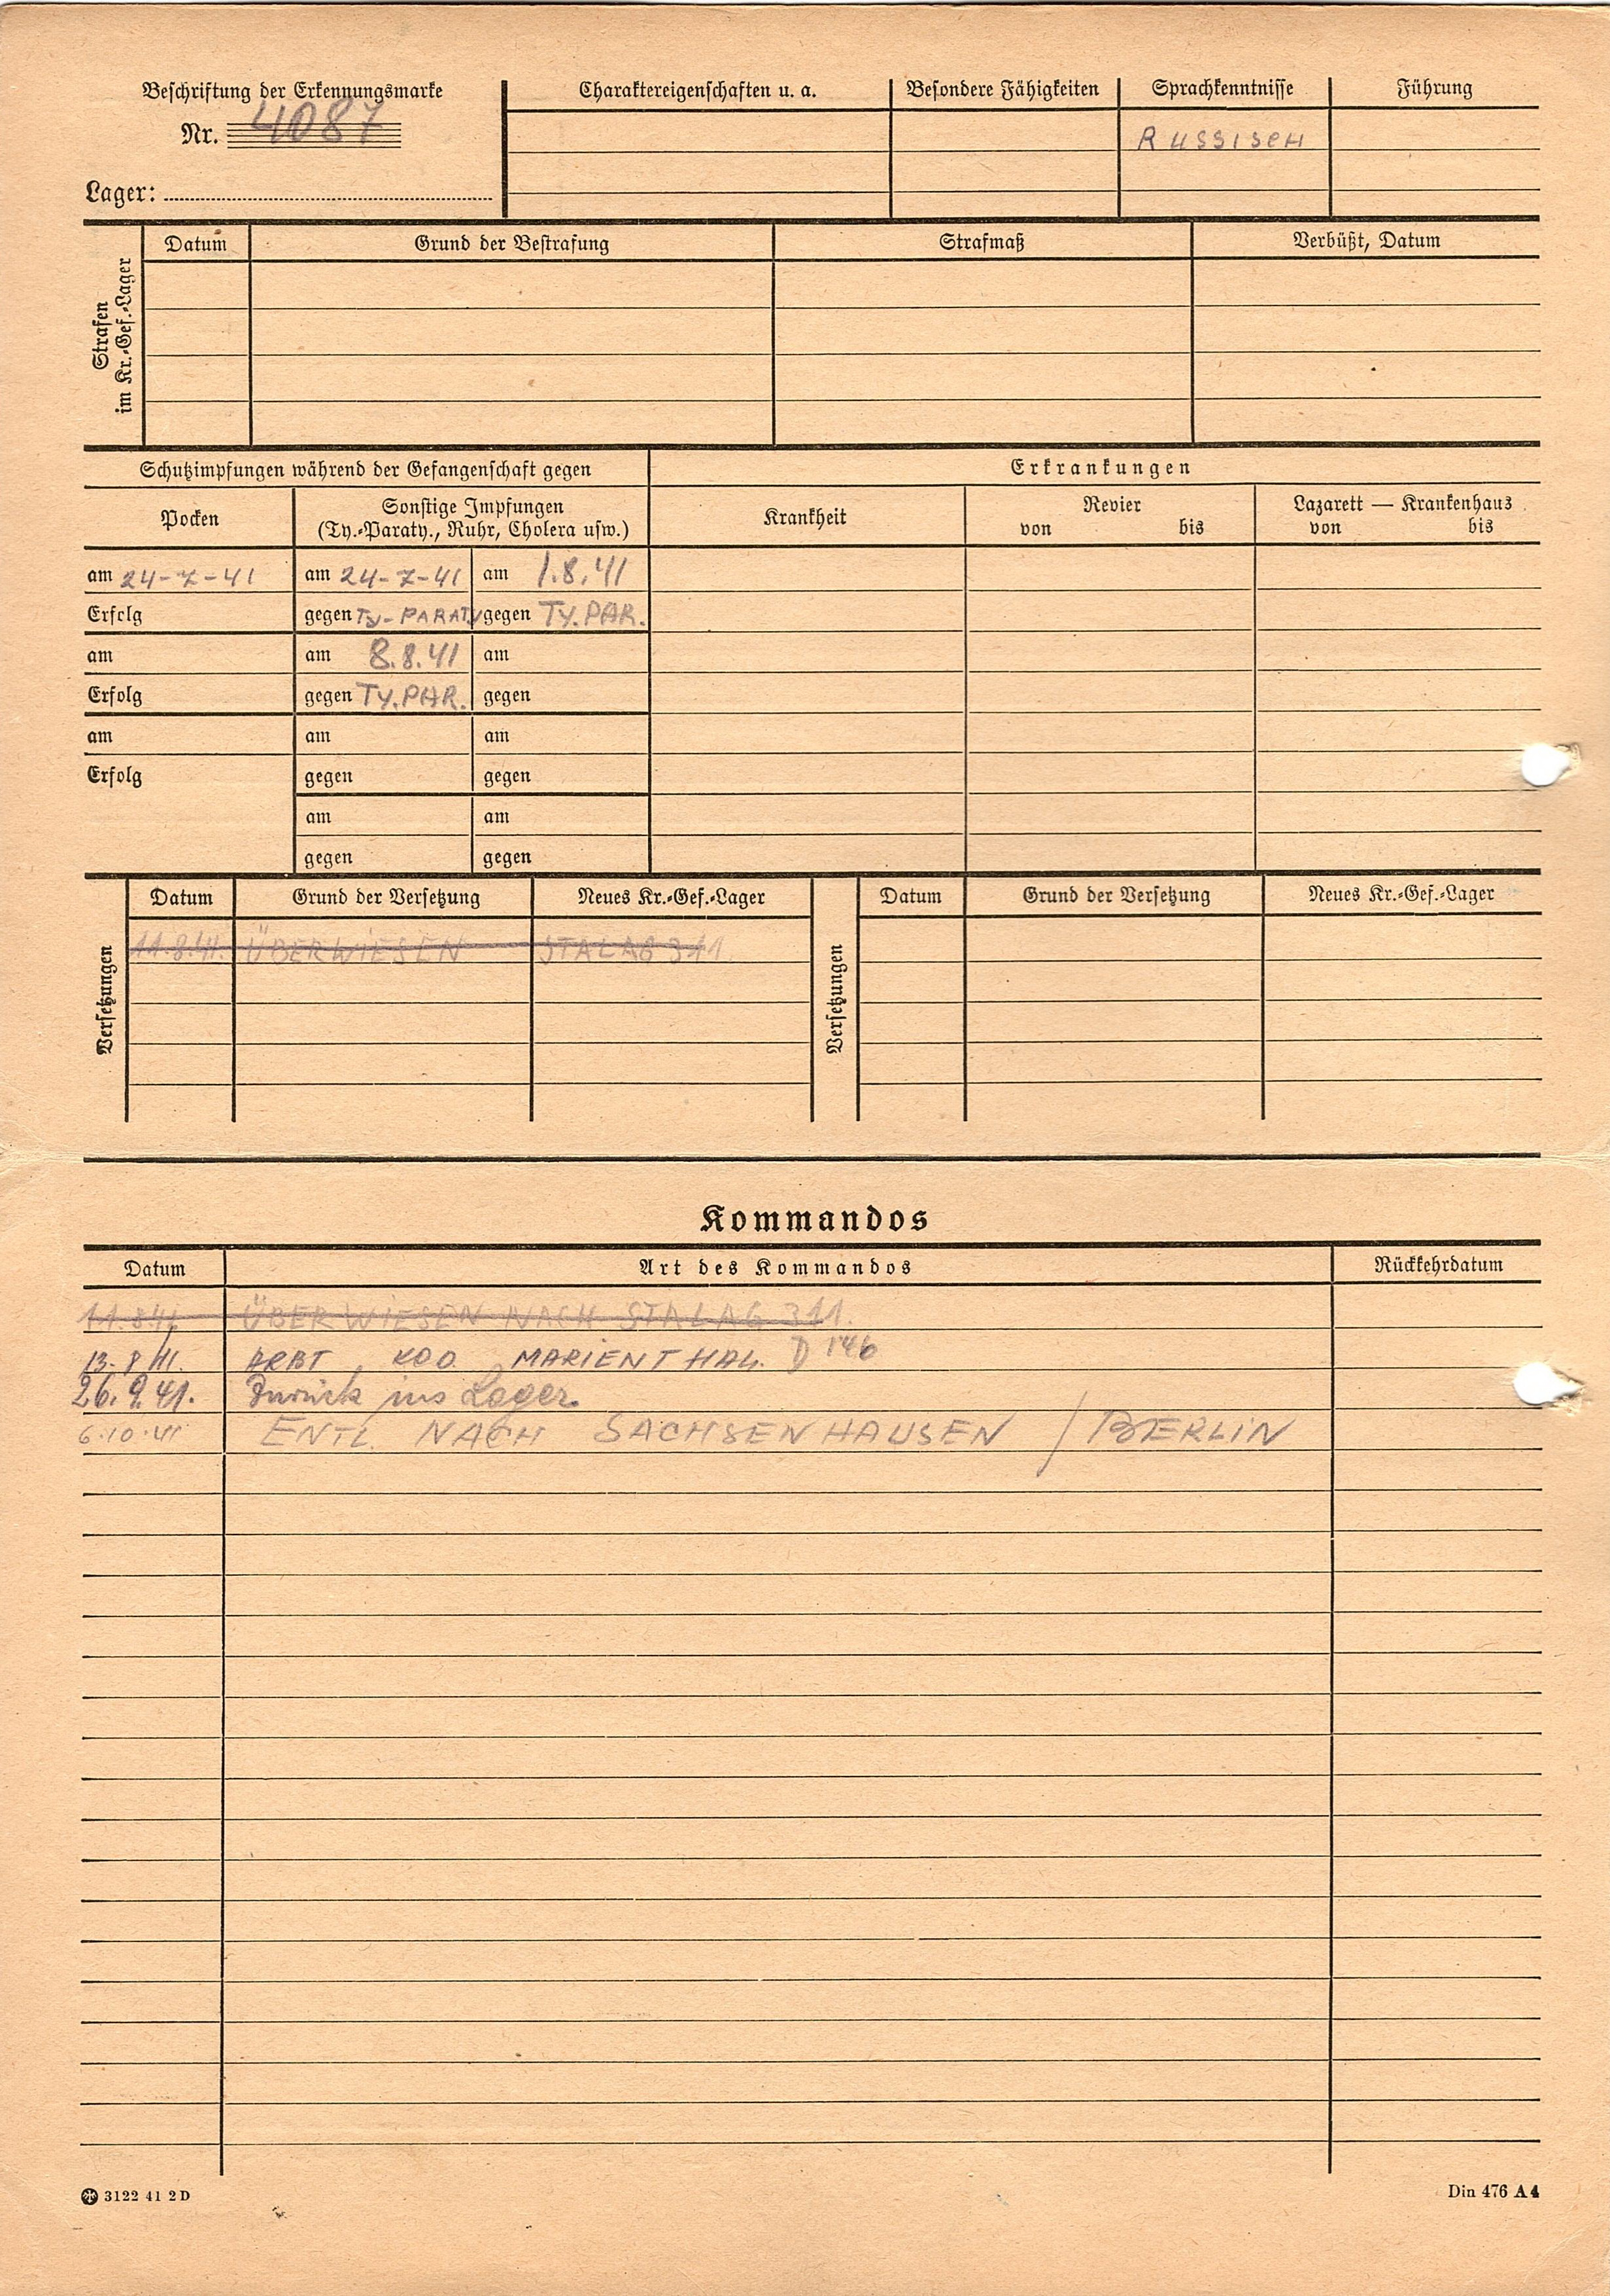 Beschriftung der Erkennungsmarke
Nr. 4087
Lager:
Charaktereigenschaften u. a.
Besondere Fähigkeiten
Sprachkenntnisse
Führung
RUSSISCH
Strafen
im Kr.-Gef.-Lager
Datum
Grund der Bestrafung
Strafmaß
Verbüßt, Datum
Schutzimpfungen während der Gefangenschaft gegen
Erkrankungen
Pocken
Sonstige Impfungen
(Ty.-Paraty., Ruhr, Cholera usw.)
Krankheit
Revier
von bis
Lazarett — Krankenhaus
von bis
am 24-7-41 am 24-7-41 am 1.8.41
Erfolg gegen TY-PARATY gegen TY.PAR.
am am 8.8.41 am
Erfolg gegen TY.PAR. gegen
am am am
Erfolg gegen gegen
am am
gegen gegen
Versetzungen
Datum Grund der Versetzung Neues Kr.-Gef.-Lager
11.8.41. ÜBERWIESEN STALAG 311.
Versetzungen
Datum Grund der Versetzung Neues Kr.-Gef.-Lager
Kommandos
Datum Art des Kommandos Rückkehrdatum
11.8.41. ÜBERWIESEN NACH STALAG 311.
13.8.41. ARBT. KDO. MARIENTHAL. D 146
26.9.41. Zurück ins Lager.
6.10.41 ENTL. NACH SACHSENHAUSEN / BERLIN
3122 41 2 D
Din 476 A 4